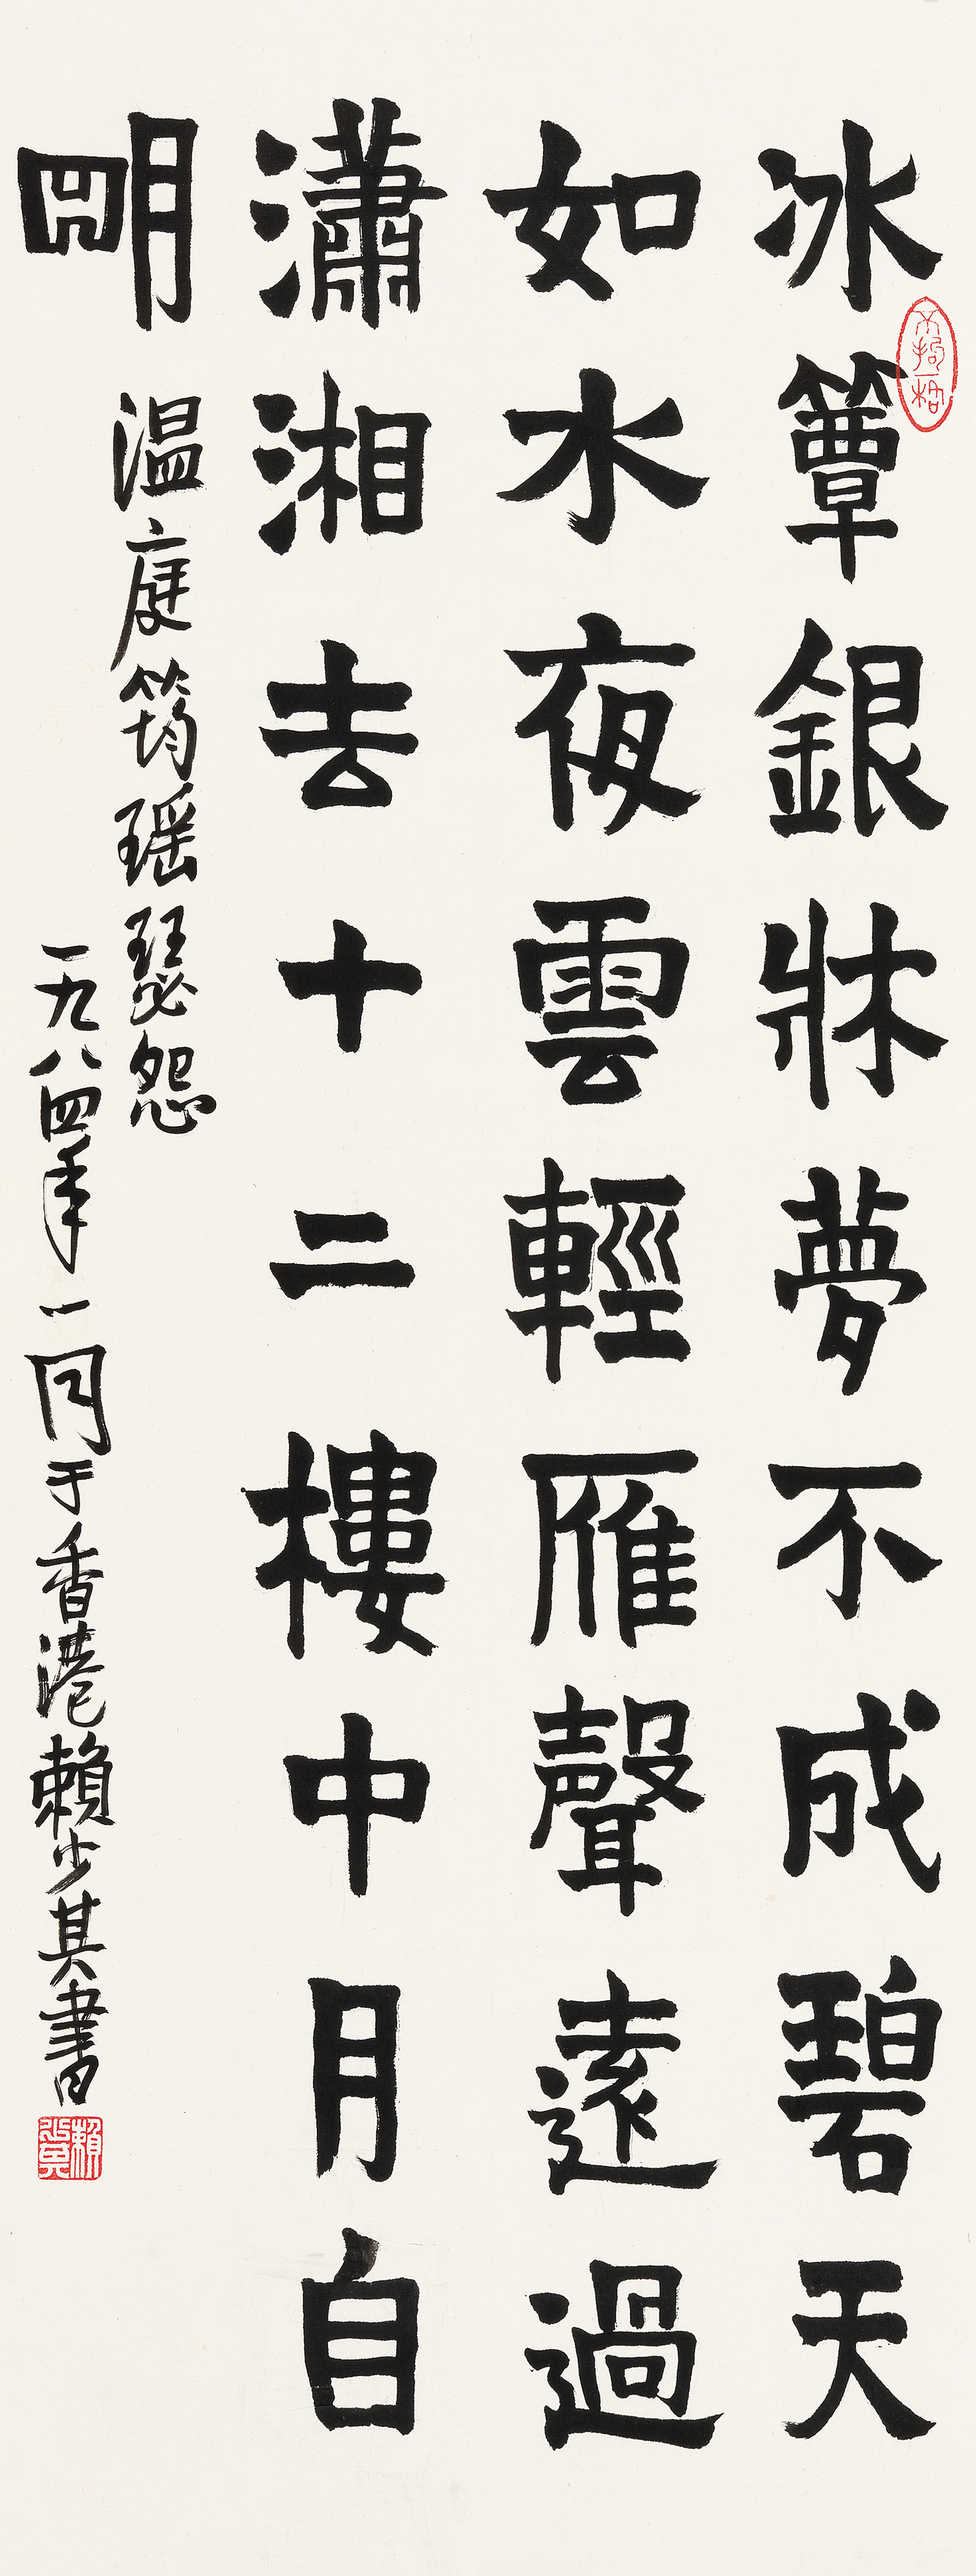 冰簟銀牀夢不成碧天
如水夜雲輕雁聲遠過
瀟湘去十二樓中月自
明
温庭筠瑶瑟怨
一九八四年一月于香港賴少其書
不拘一格